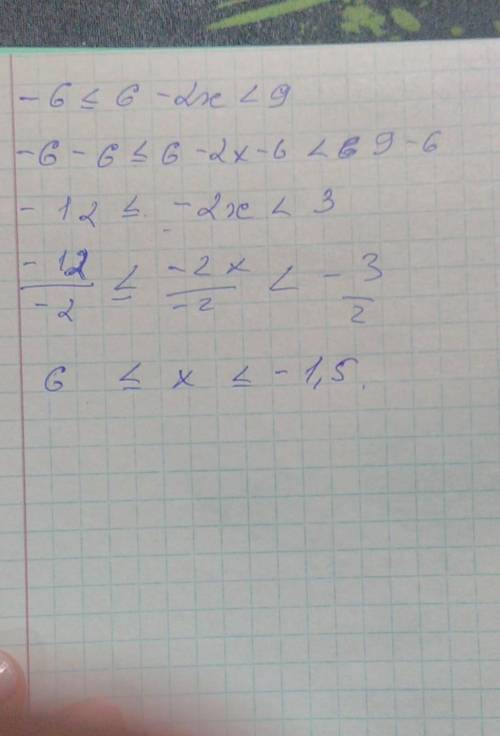 -6 ≤ 6 -2x < 9
-6 -6 ≤ 6 -2x -6 < 9 -6
-12 ≤ -2x < 3
-12/-2 ≤ -2x/-2 < -3/2
6 ≤ x ≤ -1,5.